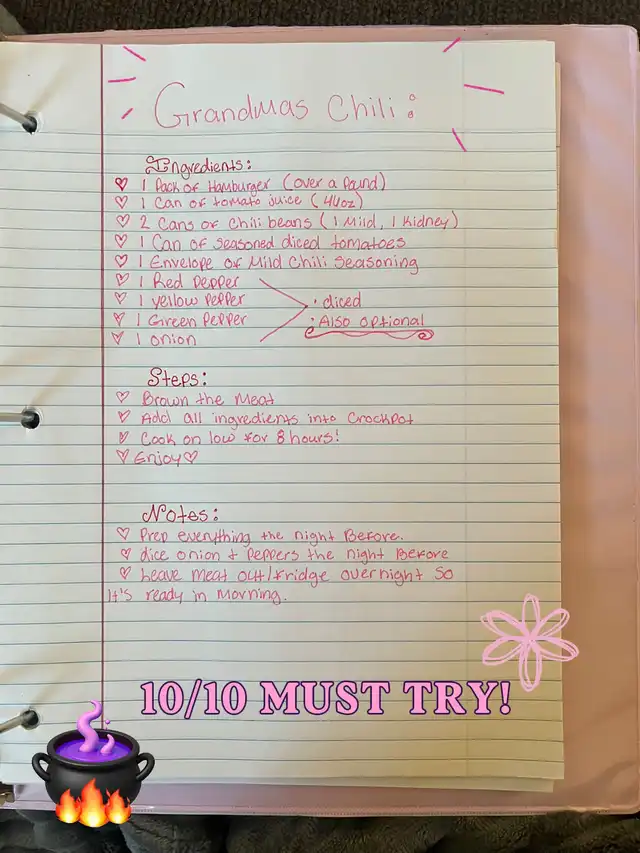 Grandmas Chili:
Ingredients:
♡ 1 Pack of Hamburger (over a pound)
♡ 1 Can of tomato juice (44oz)
♡ 2 Cans of Chili beans (1 Mild, 1 Kidney)
♡ 1 Can of seasoned diced tomatoes
♡ 1 Envelope of Mild Chili Seasoning
♡ 1 Red Pepper
♡ 1 yellow Pepper
· diced
♡ 1 Green Pepper
· Also optional
♡ 1 onion
Steps:
♡ Brown the Meat
♡ Add all ingredients into Crockpot
♡ Cook on low for 8 hours!
♡ Enjoy ♡
Notes:
♡ Prep everything the night Before.
♡ dice onion + Peppers the night Before
♡ Leave meat out/fridge overnight so
it's ready in Morning.
10/10 MUST TRY!